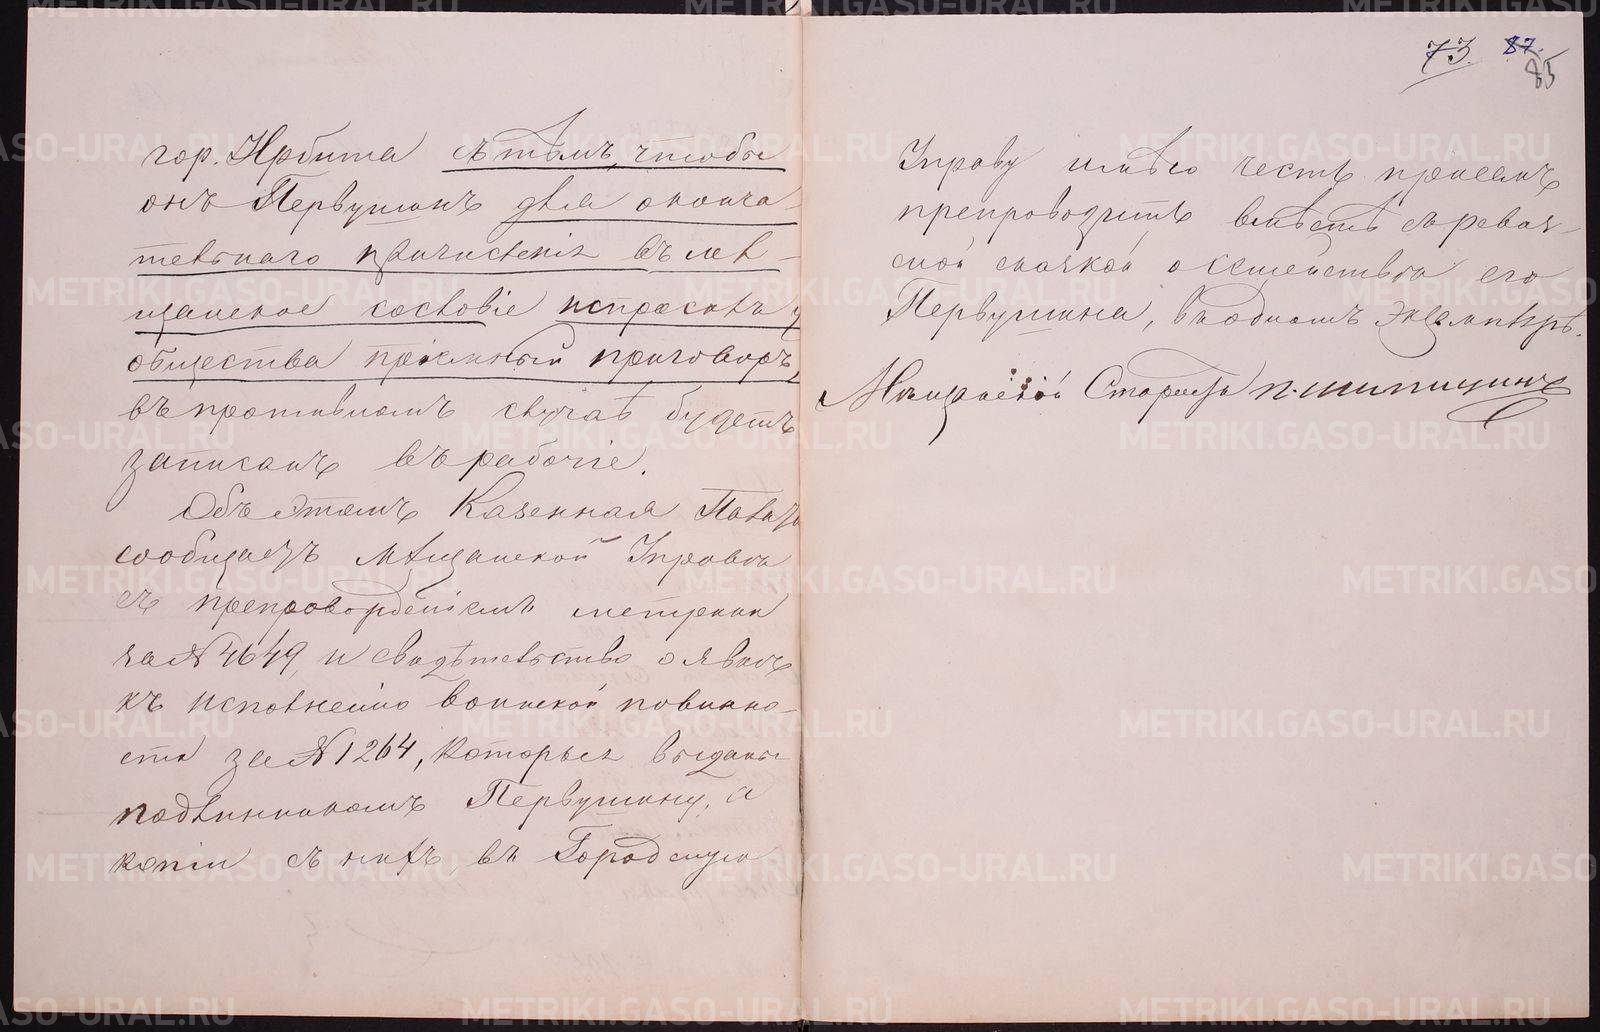 гор. Ирбита съ тѣмъ, чтобы
онъ Первушинъ для оконча-
тельнаго причисленія въ мѣ-
щанское сословіе испросилъ у
общества пріемный приговоръ,
въ противномъ случаѣ будетъ
записанъ въ рабочіе.
Объ этомъ Казенная Палата
сообщаетъ Мѣщанской Управѣ
съ препровожденіемъ метрики
за № 4649, и свидѣтельство о явкѣ
къ исполненію воинской повинно-
сти за № 1264, которыя выданы
подлинникомъ Первушину, а
копіи съ нихъ въ Городскую
73. 87.
85
Управу имѣю честь при семъ
препроводить вмѣстѣ съ ревиз-
ской сказкой о семействѣ его
Первушина, въ одномъ экземплярѣ.
Мѣщанскій Староста П. Шипицинъ
METRIKI.GASO-URAL.RU